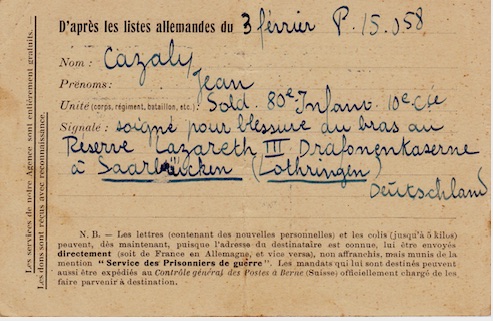 D'après les listes allemandes du 3 février P. 15.058
Nom : Cazaly
Prénoms : Jean
Unité (corps, régiment, bataillon, etc.) : Sold. 80e Infant. 10e Cie
Signalé : soigné pour blessure du bras au
Réserve Lazareth III Drafonenkaserne
à Saarbrücken (Lothringen)
Deutschland
N. B. = Les lettres (contenant des nouvelles personnelles) et les colis (jusqu'à 5 kilos)
peuvent, dès maintenant, puisque l'adresse du destinataire est connue, lui être envoyés
directement (soit de France en Allemagne, et vice versa), non affranchis, mais munis de la
mention "Service des Prisonniers de guerre". Les mandats qui lui sont destinés peuvent
aussi être expédiés au Contrôle général des Postes à Berne (Suisse) officiellement chargé de les
faire parvenir à destination.
Les services de notre Agence sont entièrement gratuits.
Les dons sont reçus avec reconnaissance.